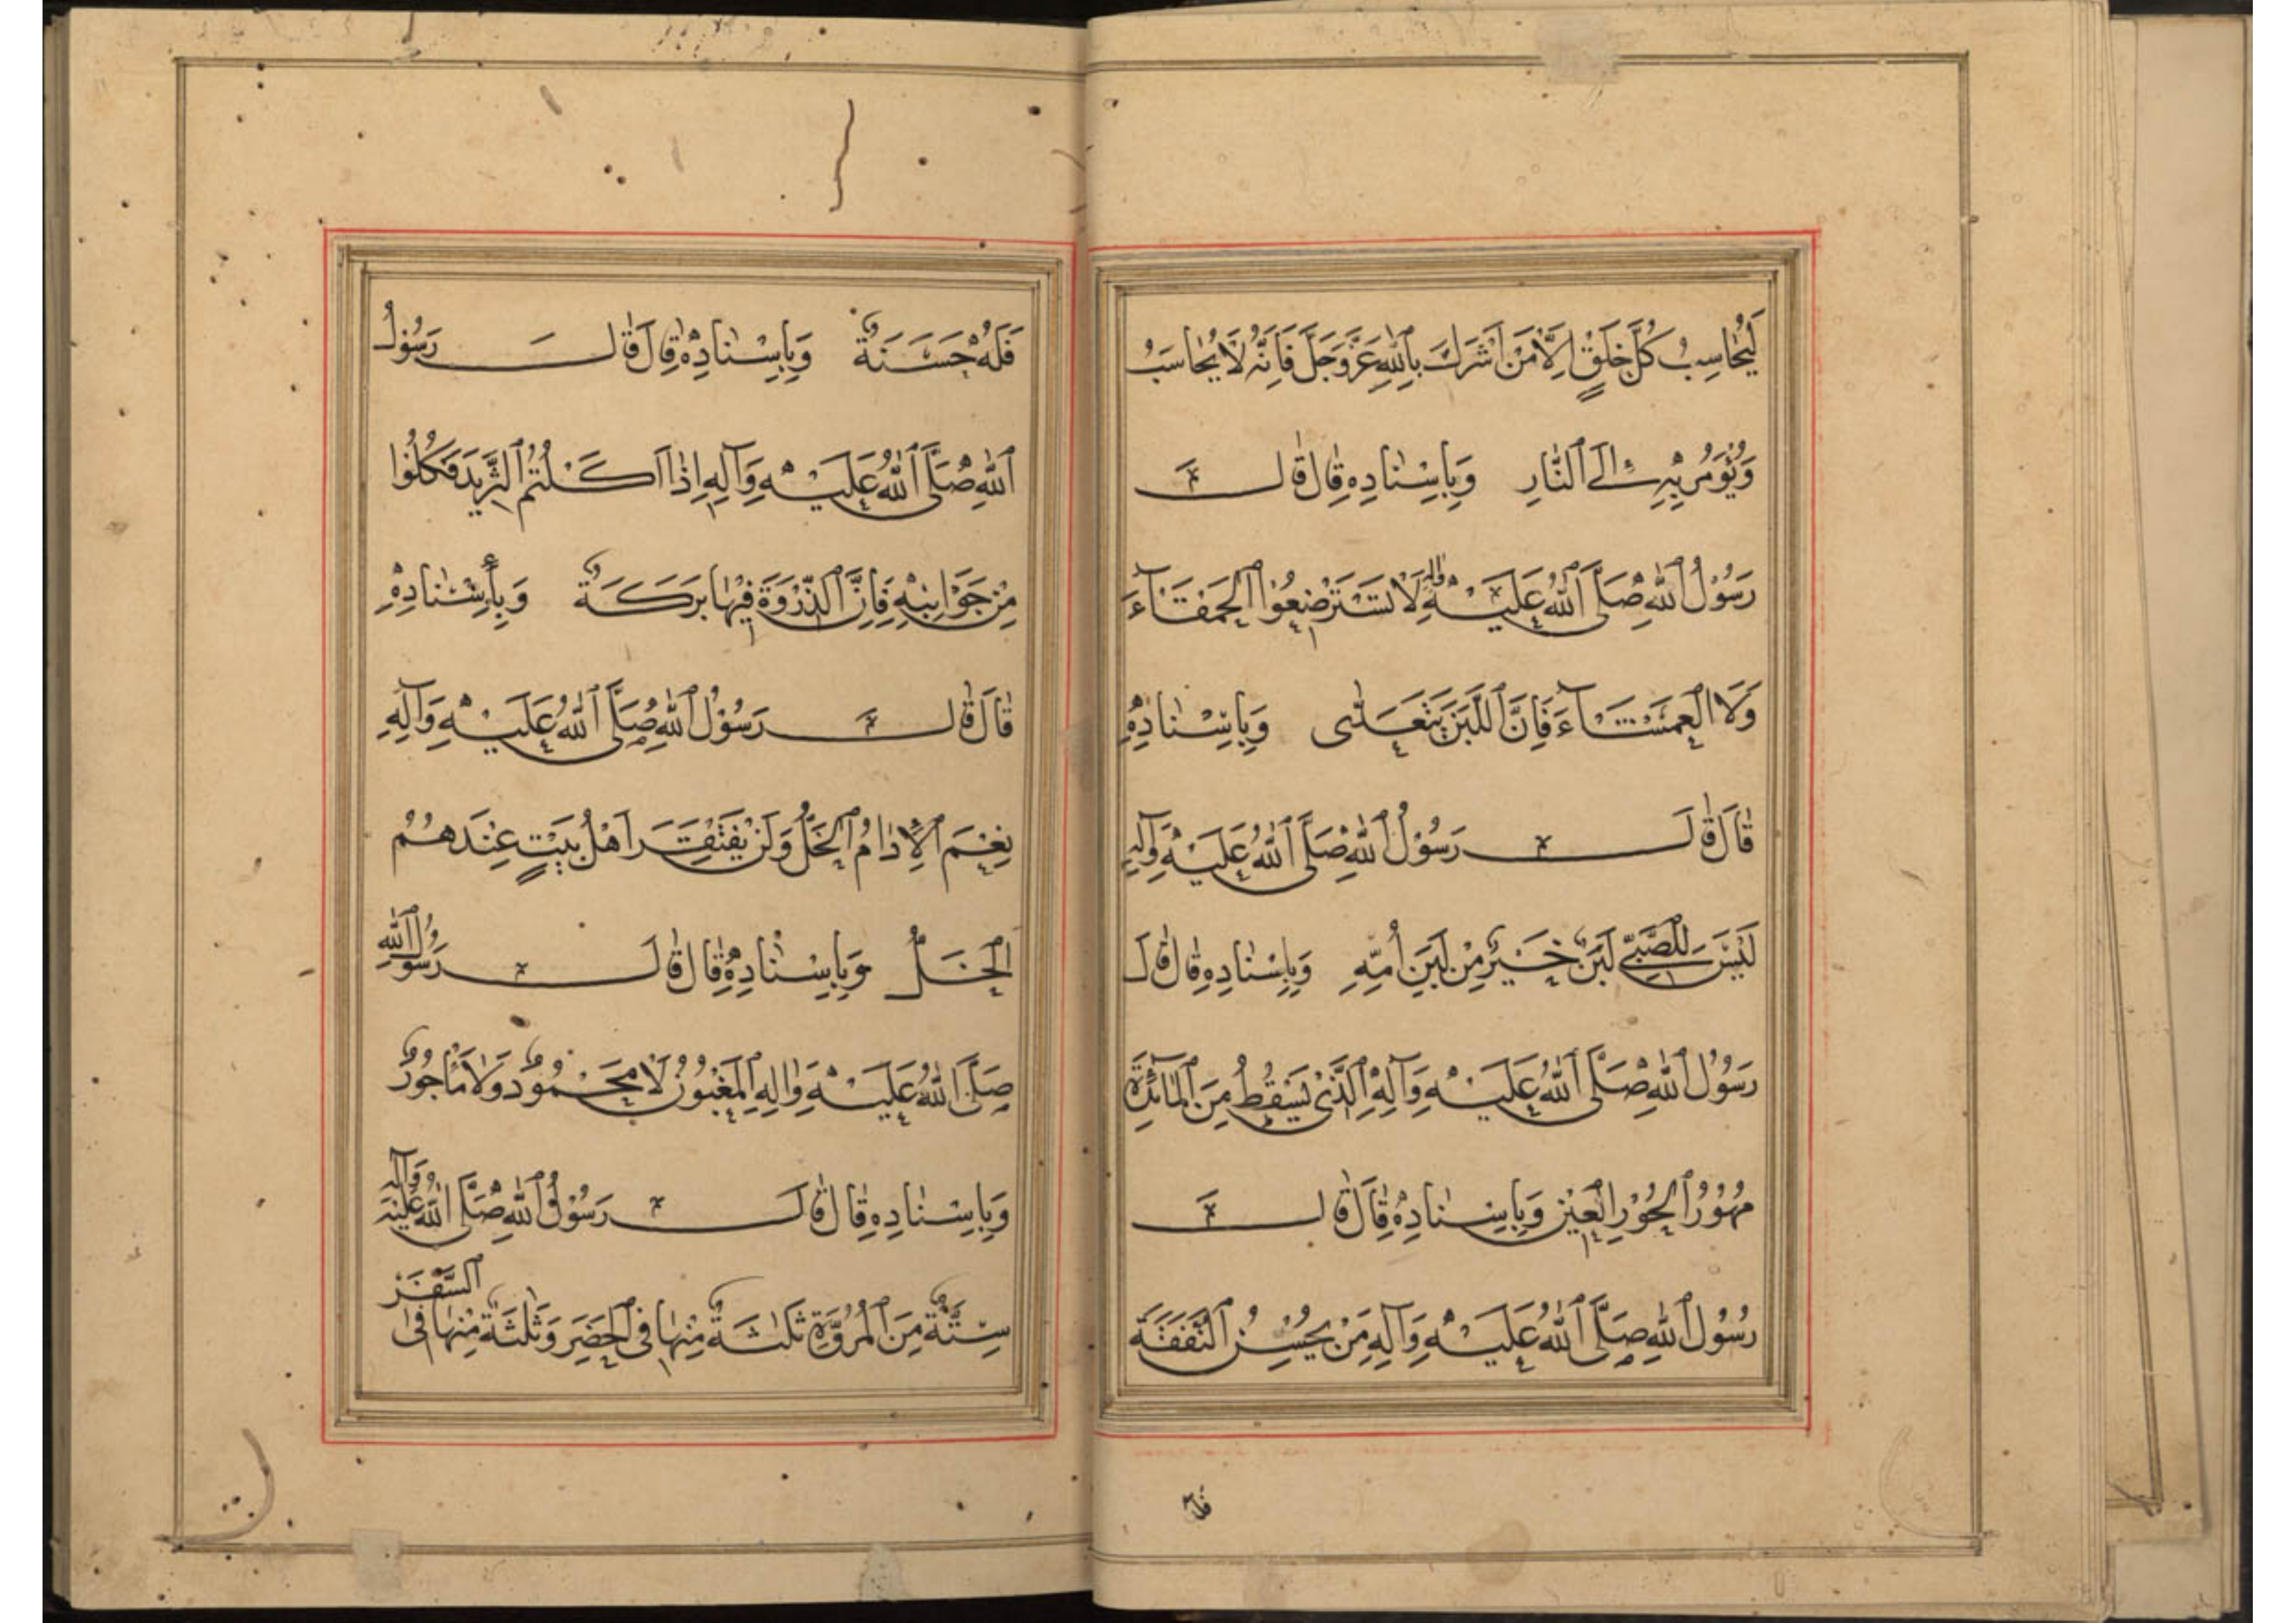 لَيُحَاسِبُ كُلَّ خَلْقٍ اِلَّا مَنْ اَشْرَكَ بِاللّٰهِ عَزَّ وَجَلَّ فَاِنَّهُ لَا يُحَاسَبُ
وَيُؤْمَرُ بِهِ اِلَى النَّارِ وَبِاِسْنَادِهِ قَالَ قَالَ
رَسُوْلُ اللّٰهِ صَلَّى اللّٰهُ عَلَيْهِ وَاٰلِهِ لَا تَسْتَرْضِعُوا الْحَمْقَآءَ
وَلَا الْعَمْشَآءَ فَاِنَّ اللَّبَنَ يَتَعَدّٰى وَبِاِسْنَادِهِ
قَالَ قَالَ رَسُوْلُ اللّٰهِ صَلَّى اللّٰهُ عَلَيْهِ وَاٰلِهِ
لَيْسَ لِلصَّبِيِّ لَبَنٌ خَيْرٌ مِنْ لَبَنِ اُمِّهِ وَبِاِسْنَادِهِ قَالَ قَالَ
رَسُوْلُ اللّٰهِ صَلَّى اللّٰهُ عَلَيْهِ وَاٰلِهِ الَّذِيْ يَسْقُطُ مِنَ الْمَآئِدَةِ
مُهُوْرُ الْحُوْرِ الْعِيْنِ وَبِاِسْنَادِهِ قَالَ قَالَ
رَسُوْلُ اللّٰهِ صَلَّى اللّٰهُ عَلَيْهِ وَاٰلِهِ مَنْ يُحْسِنُ النَّفَقَةَ
فله
فَلَهُ حَسَنَةٌ وَبِاِسْنَادِهِ قَالَ قَالَ رَسُوْلُ
اللّٰهِ صَلَّى اللّٰهُ عَلَيْهِ وَاٰلِهِ اِذَا اَكَلْتُمُ الثَّرِيْدَ فَكُلُوْا
مِنْ جَوَانِبِهِ فَاِنَّ الذِّرْوَةَ فِيْهَا بَرَكَةٌ وَبِاِسْنَادِهِ
قَالَ قَالَ رَسُوْلُ اللّٰهِ صَلَّى اللّٰهُ عَلَيْهِ وَاٰلِهِ
نِعْمَ الْاِدَامُ الْخَلُّ وَلَنْ يَفْتَقِرَ اَهْلُ بَيْتٍ عِنْدَهُمُ
الْخَلُّ وَبِاِسْنَادِهِ قَالَ قَالَ رَسُوْلُ اللّٰهِ
صَلَّى اللّٰهُ عَلَيْهِ وَاٰلِهِ الْمَغْبُوْنُ لَا مَحْمُوْدٌ وَلَا مَأْجُوْرٌ
وَبِاِسْنَادِهِ قَالَ قَالَ رَسُوْلُ اللّٰهِ صَلَّى اللّٰهُ عَلَيْهِ وَاٰلِهِ
سِتَّةٌ مِنَ الْمُرُوَّةِ ثَلٰثَةٌ مِنْهَا فِى الْحَضَرِ وَثَلٰثَةٌ مِنْهَا فِى السَّفَرِ